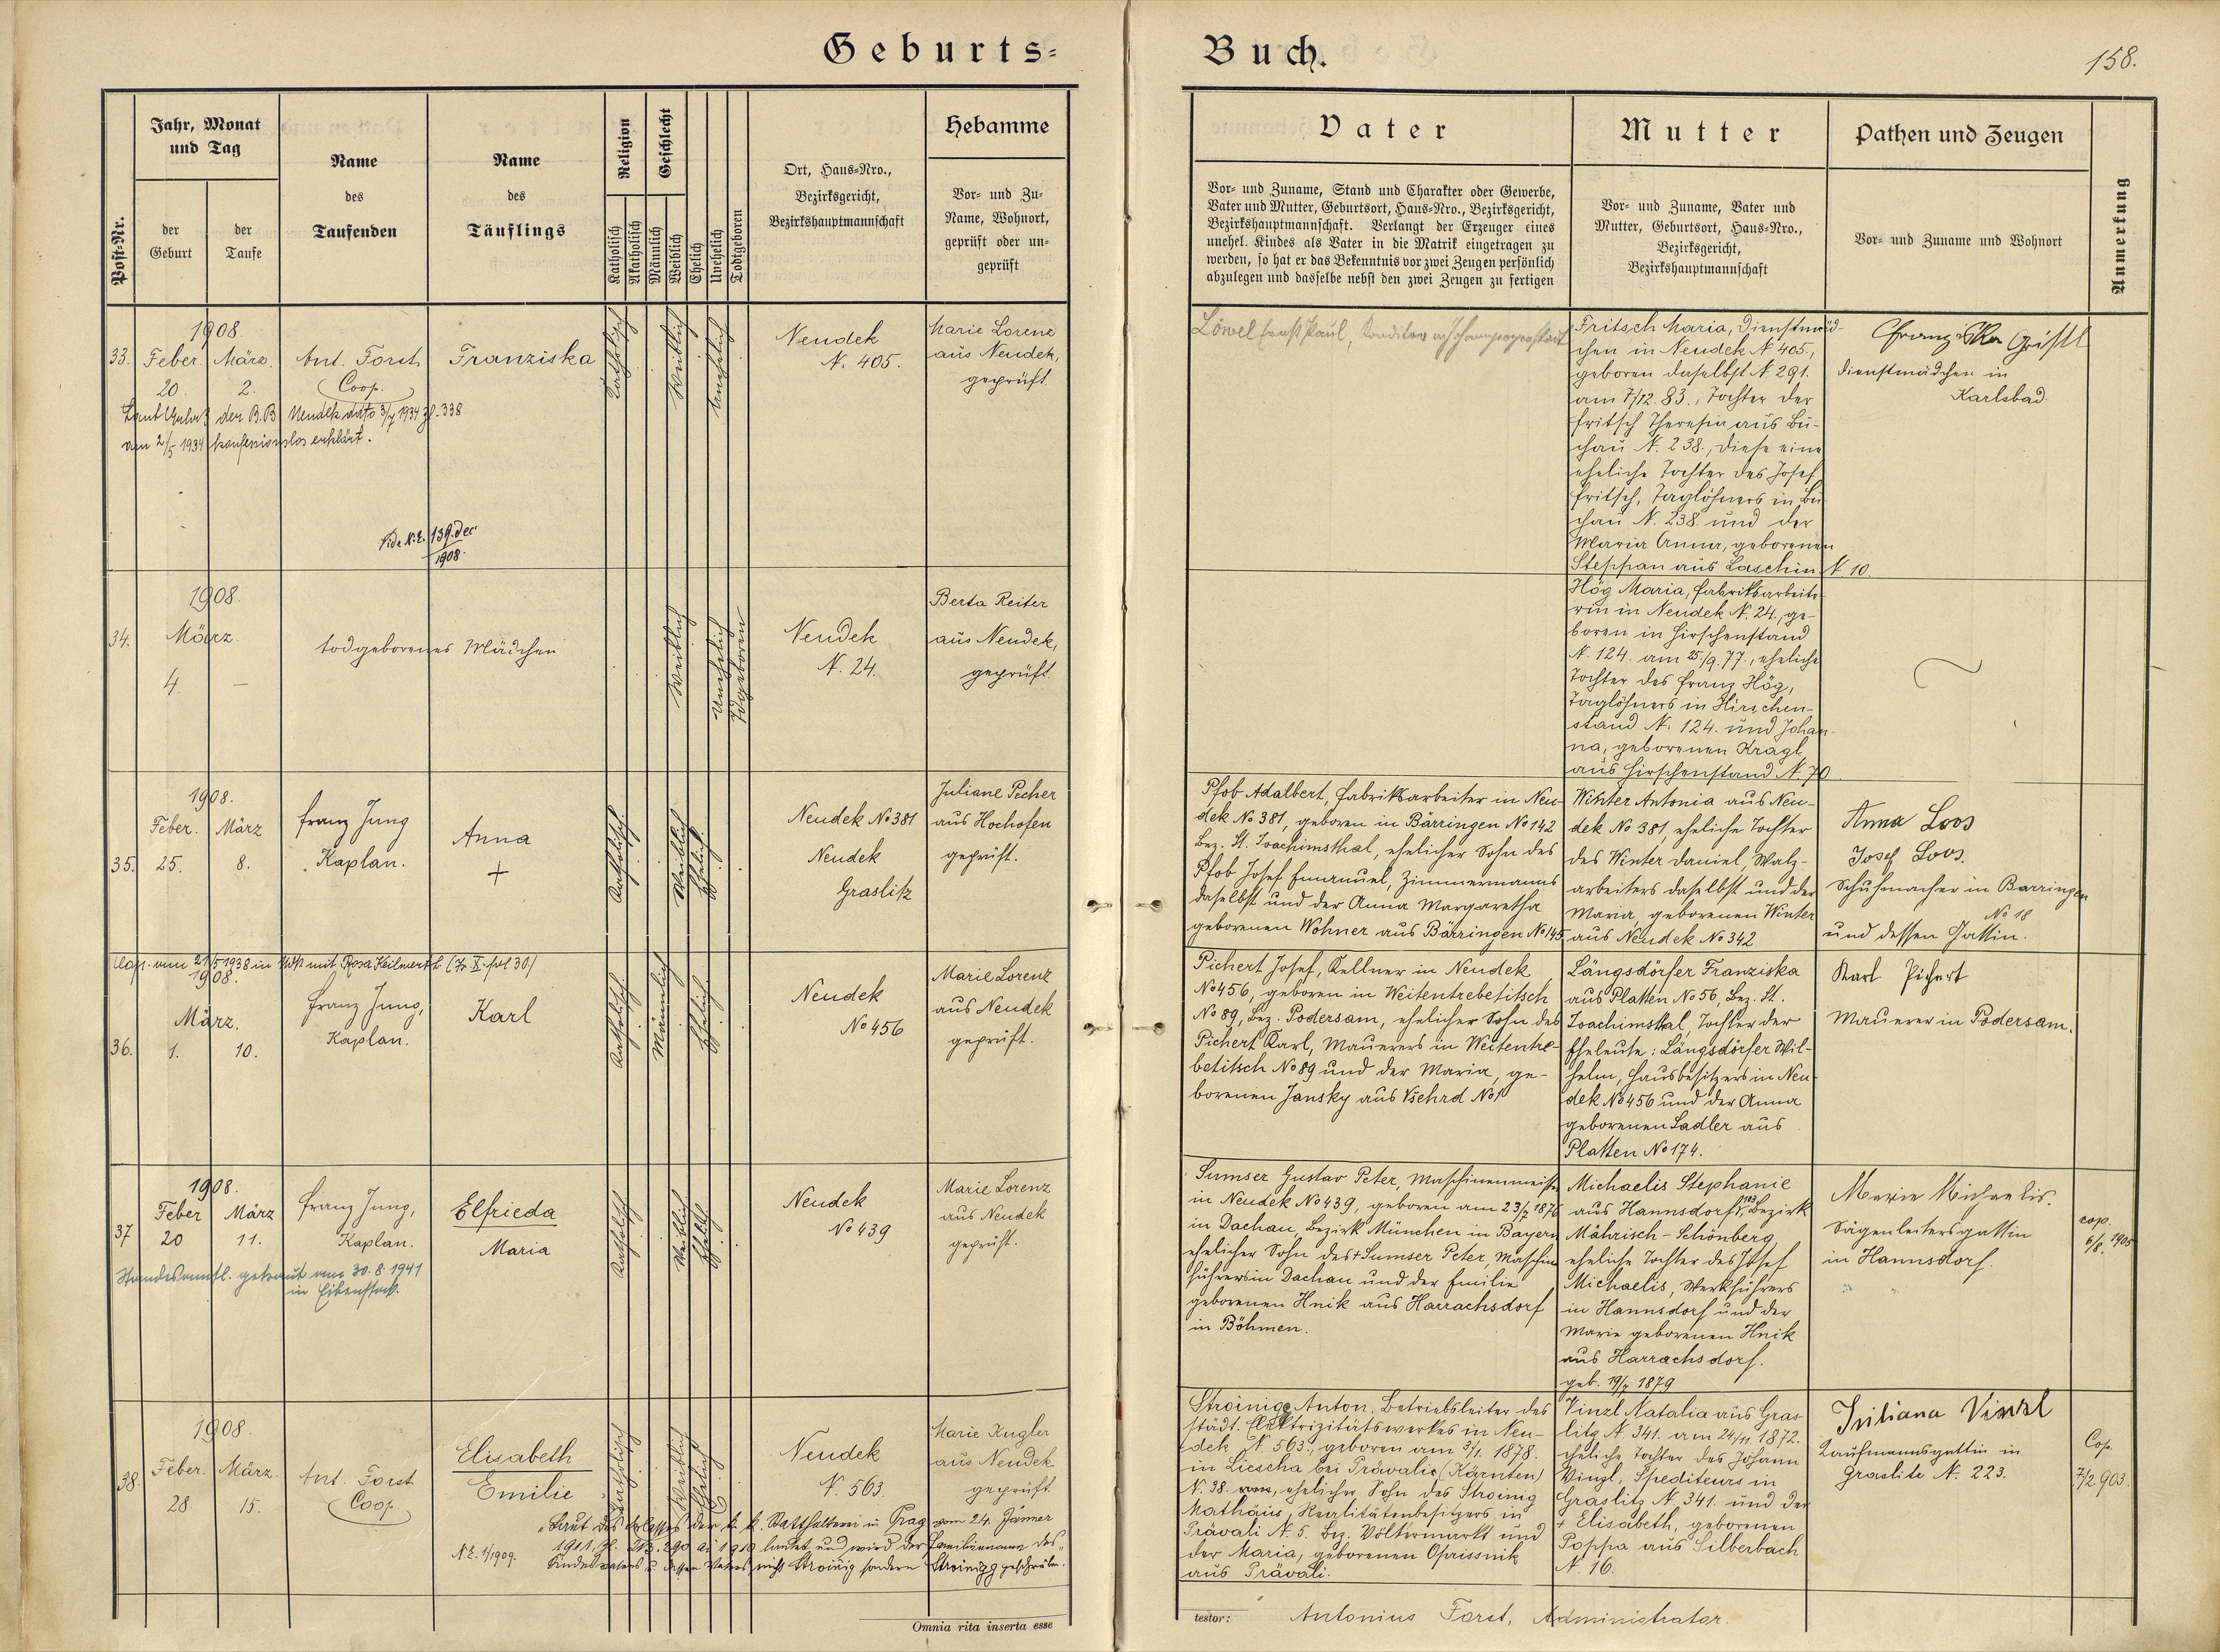 Geburts-
Buch.
158.
Post-Nr.
Jahr, Monat
und Tag
der
Geburt
der
Taufe
Name
des
Taufenden
Name
des
Täuflings
Religion
Katholisch
Akatholisch
Geschlecht
Männlich
Weiblich
Ehelich
Unehelich
Todtgeboren
Ort, Haus-Nro.,
Bezirksgericht,
Bezirkshauptmannschaft
Hebamme
Vor- und Zu-
Name, Wohnort,
geprüft oder un-
geprüft
Vater
Vor- und Zuname, Stand und Charakter oder Gewerbe,
Vater und Mutter, Geburtsort, Haus-Nro., Bezirksgericht,
Bezirkshauptmannschaft. Verlangt der Erzeuger eines
unehel. Kindes als Vater in die Matrik eingetragen zu
werden, so hat er das Bekenntnis vor zwei Zeugen persönlich
abzulegen und dasselbe nebst den zwei Zeugen zu fertigen
Mutter
Vor- und Zuname, Vater und
Mutter, Geburtsort, Haus-Nro.,
Bezirksgericht,
Bezirkshauptmannschaft
Pathen und Zeugen
Vor- und Zuname und Wohnort
Anmerkung
33.
1908.
Feber
20.
März.
2.
Ant. Forst
Coop.
Franziska
Katholisch
Weiblich
Unehelich
Neudek
N. 405.
Marie Lorenz
aus Neudek,
geprüft.
der B.B. Neudek ddto 3/7 1934 Zl. 338
vom 2/5 1934 konfessionslos erklärt.
Vide N.E. 139. Dec
1908.
Löwel Ernst Paul, Konditor
Fritsch Maria, Dienstmäd-
chen in Neudek N. 405.,
geboren daselbst N. 291.
am 7/12. 83., Tochter der
Fritsch Theresia aus Bu-
chau N. 238., diese eine
eheliche Tochter des Josef
Fritsch, Taglöhners in Bu-
chau N. 238. und der
Maria Anna, geborenen
Steppan aus Laschin N. 10.
Franziska Gristl
Dienstmädchen in
Karlsbad.
34.
1908.
März
4.
—
todgeborenes Mädchen
Weiblich
Unehelich
Todgeboren
Neudek
N. 24.
Berta Reiter
aus Neudek,
geprüft.
Hög Maria, Fabriksarbeite-
rin in Neudek N. 24., ge-
boren in Hirschenstand
N. 124. am 25/9. 77., eheliche
Tochter des Franz Hög,
Taglöhners in Hirschen-
stand N. 124. und Johan-
na, geborenen Kragl
aus Hirschenstand N. 70.
35.
1908.
Feber.
25.
März
8.
Franz Jung
Kaplan.
Anna
+
Katholisch
Weiblich
Ehelich
Neudek No 381
Neudek
Graslitz
Juliane Pecher
aus Hochofen
geprüft.
Pfob Adalbert, Fabriksarbeiter in Neu-
dek No 381, geboren in Bärringen No 142
Bez. St. Joachimsthal, ehelicher Sohn des
Pfob Josef Emanuel, Zimmermanns
daselbst und der Anna Margaretha
geborenen Wohner aus Bärringen No 145
Winter Antonia aus Neu-
dek No 381, eheliche Tochter
des Winter Daniel, Walz-
arbeiters daselbst und der
Maria, geborenen Winter
aus Neudek No 342
Anna Loos
Josef Loos.
Schuhmacher in Barringen
No 18
und dessen Gattin.
Cop. vom 21/5 1938 in mit Rosa (Tr. X. fol 30)
36.
1908.
März.
1.
10.
Franz Jung,
Kaplan.
Karl
Katholisch
Männlich
Ehelich
Neudek
No 456
Marie Lorenz
aus Neudek
geprüft.
Pichert Josef, Kellner in Neudek
No 456, geboren in Weitentrebetitsch
No 89, Bez. Podersam, ehelicher Sohn des
Pichert Karl, Mauerers in Weitentre-
betitsch No 89 und der Maria, ge-
borenen Jansky aus Všehrd No 1
Längsdörfer Franziska
aus Platten No 56, Bez. St.
Joachimsthal, Tochter der
Eheleute: Längsdörfer Wil-
helm, Hausbesitzers in Neu-
dek No 456 und der Anna
geborenen Sadler aus
Platten No 174.
Karl Pichert
Mauerer in Podersam.
37
1908.
Feber
20
März
11.
Franz Jung,
Kaplan.
Elfrieda
Maria
Katholisch
Weiblich
Ehelich
Neudek
No 439
Marie Lorenz
aus Neudek
geprüft.
Standesamtl. getraut am 30.8.1941
in Eibenstock.
Sumser Gustav Peter, Maschinenmeister
in Neudek No 439, geboren am 23/7 1876
in Dachau, Bezirk München in Bayern
ehelicher Sohn des + Sumser Peter, Maschin-
führers in Dachau und der Emilie
geborenen Hnik aus Harrachsdorf
in Böhmen.
Michaelis Stephanie
aus Hannsdorf 183, Bezirk
Mährisch-Schönberg
eheliche Tochter des Josef
Michaelis, Werkführers
in Hannsdorf und der
Marie geborenen Hnik
aus Harrachsdorf.
geb. 19/7 1879
Marie Michaelis.
Sägenleitersgattin
in Hannsdorf.
cop.
6/8. 1905
38.
1908.
Feber.
28.
März.
15.
Ant. Forst
Coop.
Elisabeth
Emilie
Katholisch
Weiblich
Ehelich
Neudek
N. 563.
Marie Kugler
aus Neudek
geprüft.
N.E. 1/1909.
Laut des Erlasses der k. k. Statthalterei in Prag vom 24. Jänner
1911, Zl. 290 ai 1910 lautet und wird der Familienname des
Kindesvaters u. dessen Vaters nicht Stroinig sondern Stroinigg geschrieben.
Stroinigg Anton, Betriebsleiter des
städt. Elektrizitätswerkes in Neu-
dek N. 563., geboren am 3/1. 1878.
in Liescha bei Prävalie (Kärnten)
N. 38. ehelicher Sohn des Stroinig
Mathäus, Realitätenbesitzers in
Prävali N. 5. Bez. Völkermarkt und
der Maria, geborenen Oprissnik
aus Prävali.
Vinzl Natalia aus Gras-
litz N. 341. am 24/11. 1872.
eheliche Tochter des Johann
Vinzl, Spediteurs in
Graslitz N. 341. und der
+ Elisabeth, geborenen
Poppa aus Silberbach
N. 16.
Juliana Vinzl
Kaufmannsgattin in
Graslitz N. 223.
Cop.
7/2. 903.
Omnia rita inserta esse
testor:
Antonius Forst, Administrator.